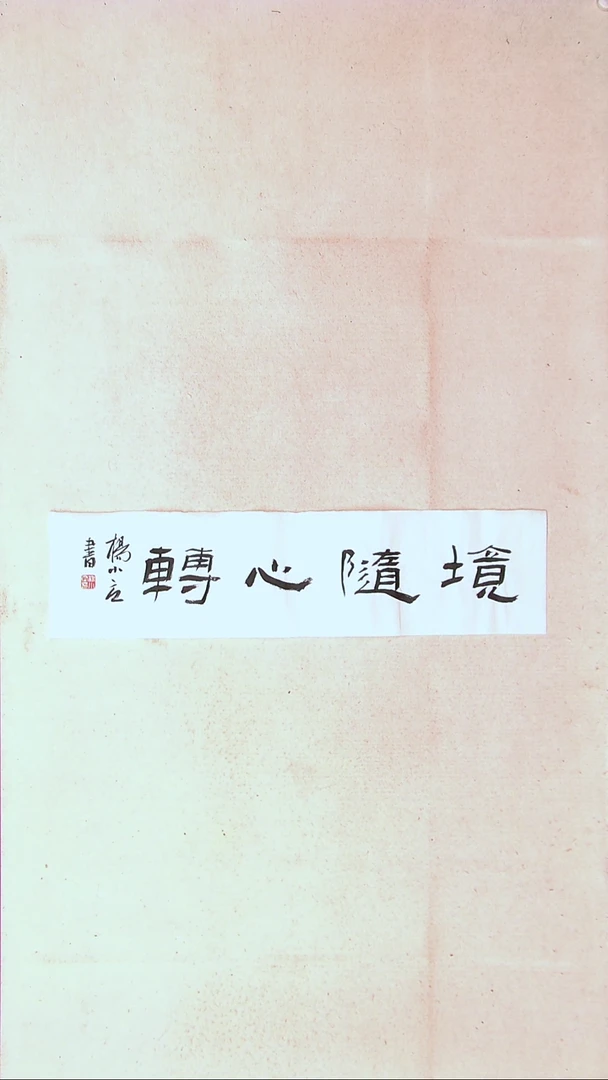 境隨心轉
楊小言
書